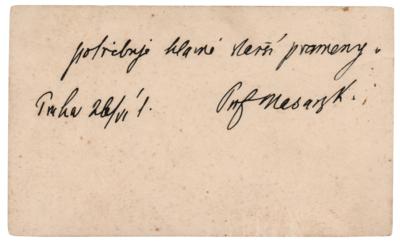 potřebuje hlavně starší prameny.
Praha 26/VI 1.
Prof Masaryk.